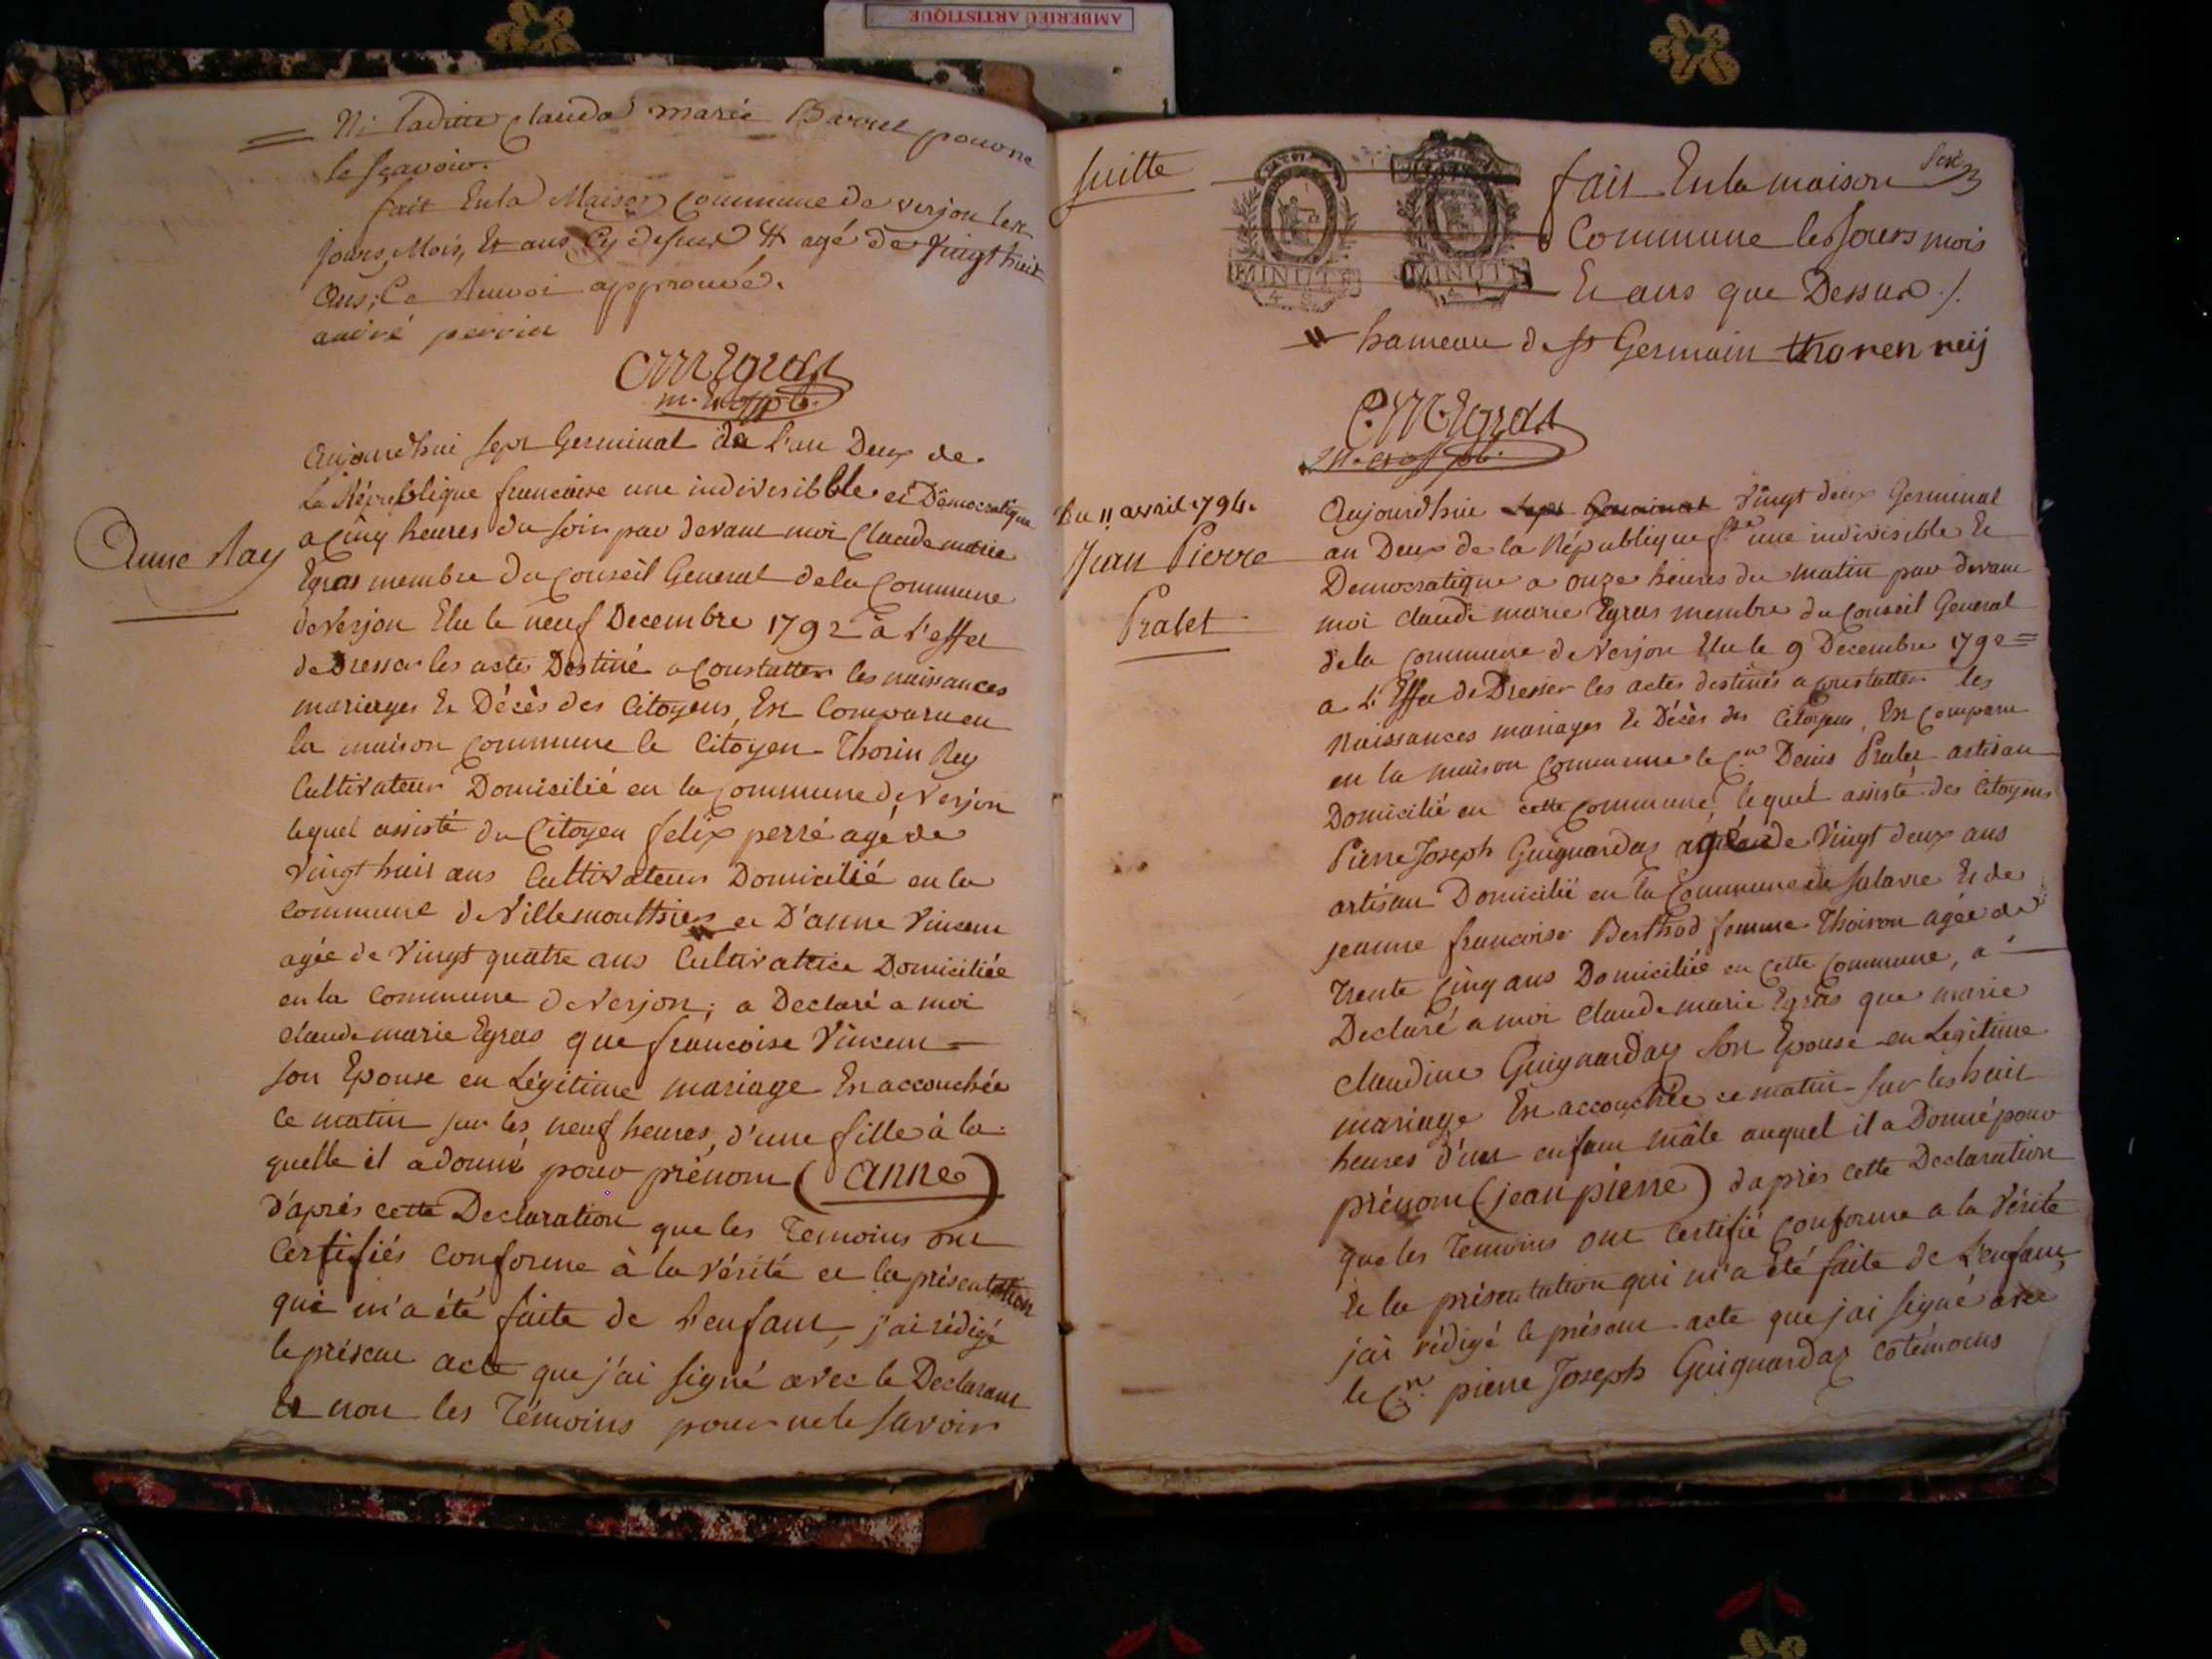 AMBERIEU ARTISTIQUE
Ni Laditte Claude marie Barret pour ne
le sçavoir.
fait En la Maison Commune de verjon les
jours, Mois, Et ans Cy dessus # agé de Vingt huit
ans; Ce Renvoi approuvé.
andré perrin
CM Egras
m. off. pb.
Anne Ray
Aujourdhui sept Germinal de L'an Deux de
La République francaise une indivisibble et Démocratique
a Cinq heures du soir par devant moi Claude marie
Egras membre du Conseil General de la Commune
de Verjon Elu le neuf Decembre 1792 à L'effet
de Dresser les actes Destiné a Constatter les naissances
mariages Et Décès des Citoyens, Est Comparu en
la maison Commune le Citoyen Thorin Rey
Cultivateur Domicilié en la Commune de Verjon
lequel assisté du Citoyen felix perré agé de
Vingt huit ans Cultivateur Domicilié en la
Commune de Villemoutier et D'anne Vincent
agée de Vingt quatre ans Cultivatrice Domiciliée
en la Commune de Verjon; a Declaré a moi
Claude marie Egras que francoise Vincent =
son Epouse en Légitime mariage Est accouchée
Ce matin sur les neuf heures, d'une fille à la
quelle il a donné pour prénom (anne)
D'après cette Declaration que les Temoins ont
Certifiés Conforme à la Vérité et la présentation
qui m'a été faite de L'enfant, j'ai rédigé
le présent acte que j'ai signé avec le Declarant
Et non les Témoins pour ne le savoir
suitte
MINUTE
MINUTE
fait En la maison
Commune les Jours mois
Et ans que Dessus ./.
hameau de St Germain thoren reij
C. M. Egras
Du 11 avril 1794.
Jean Pierre
Pralet
Aujourdhui sept Germinal Vingt deux Germinal
an Deux de la République fse une indivisible Et
Democratique a onze heures du matin par devant
moi Claude marie Egras membre du Conseil General
de la Commune de Verjon Elu le 9 Decembre 1792 =
a L'Effet de Dresser les actes destinés a Constatter les
Naissances mariages Et Décès des Citoyens, Est Comparu
en la maison Commune le Cen Denis Pralet artisan
Domicilié en cette Commune, lequel assisté des Citoyens
Pierre Joseph Guignardaz agé de Vingt deux ans
artisan Domicilié en la Commune de Salavre Et de
jeanne francoise Berthod femme Thoiron agée de
Trente Cinq ans Domiciliée en cette Commune, a
Declaré a moi Claude marie Egras que marie
Claudine Guignarday son Epouse en Legitime
mariage Est accouchée ce matin sur les huit
heures d'un enfant mâle auquel il a Donné pour
prénom (jean pierre) d'après cette Declaration
que les Temoins ont Certifié Conforme a la Vérité
Et la présentation qui m'a été faite de L'enfant,
j'ai rédigé le présent acte que j'ai signé avec
le Cen. pierre Joseph Guignardaz cotémoins